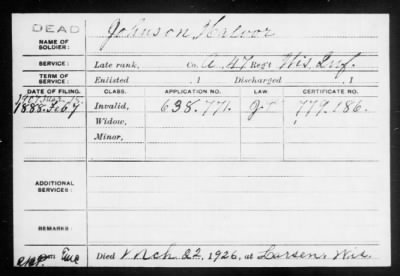 DEAD
NAME OF SOLDIER: Johnson Halvor
SERVICE: Late rank, Co. A, 47 Reg't Wis. Inf.
TERM OF SERVICE: Enlisted , 1 Discharged , 1
DATE OF FILING. CLASS. APPLICATION NO. LAW. CERTIFICATE NO.
1888. Feb 7 Invalid, 638.771. 779.186.
Widow,
Minor,
ADDITIONAL SERVICES:
REMARKS:
Died Mch 22, 1926, at Larsen, Wis.